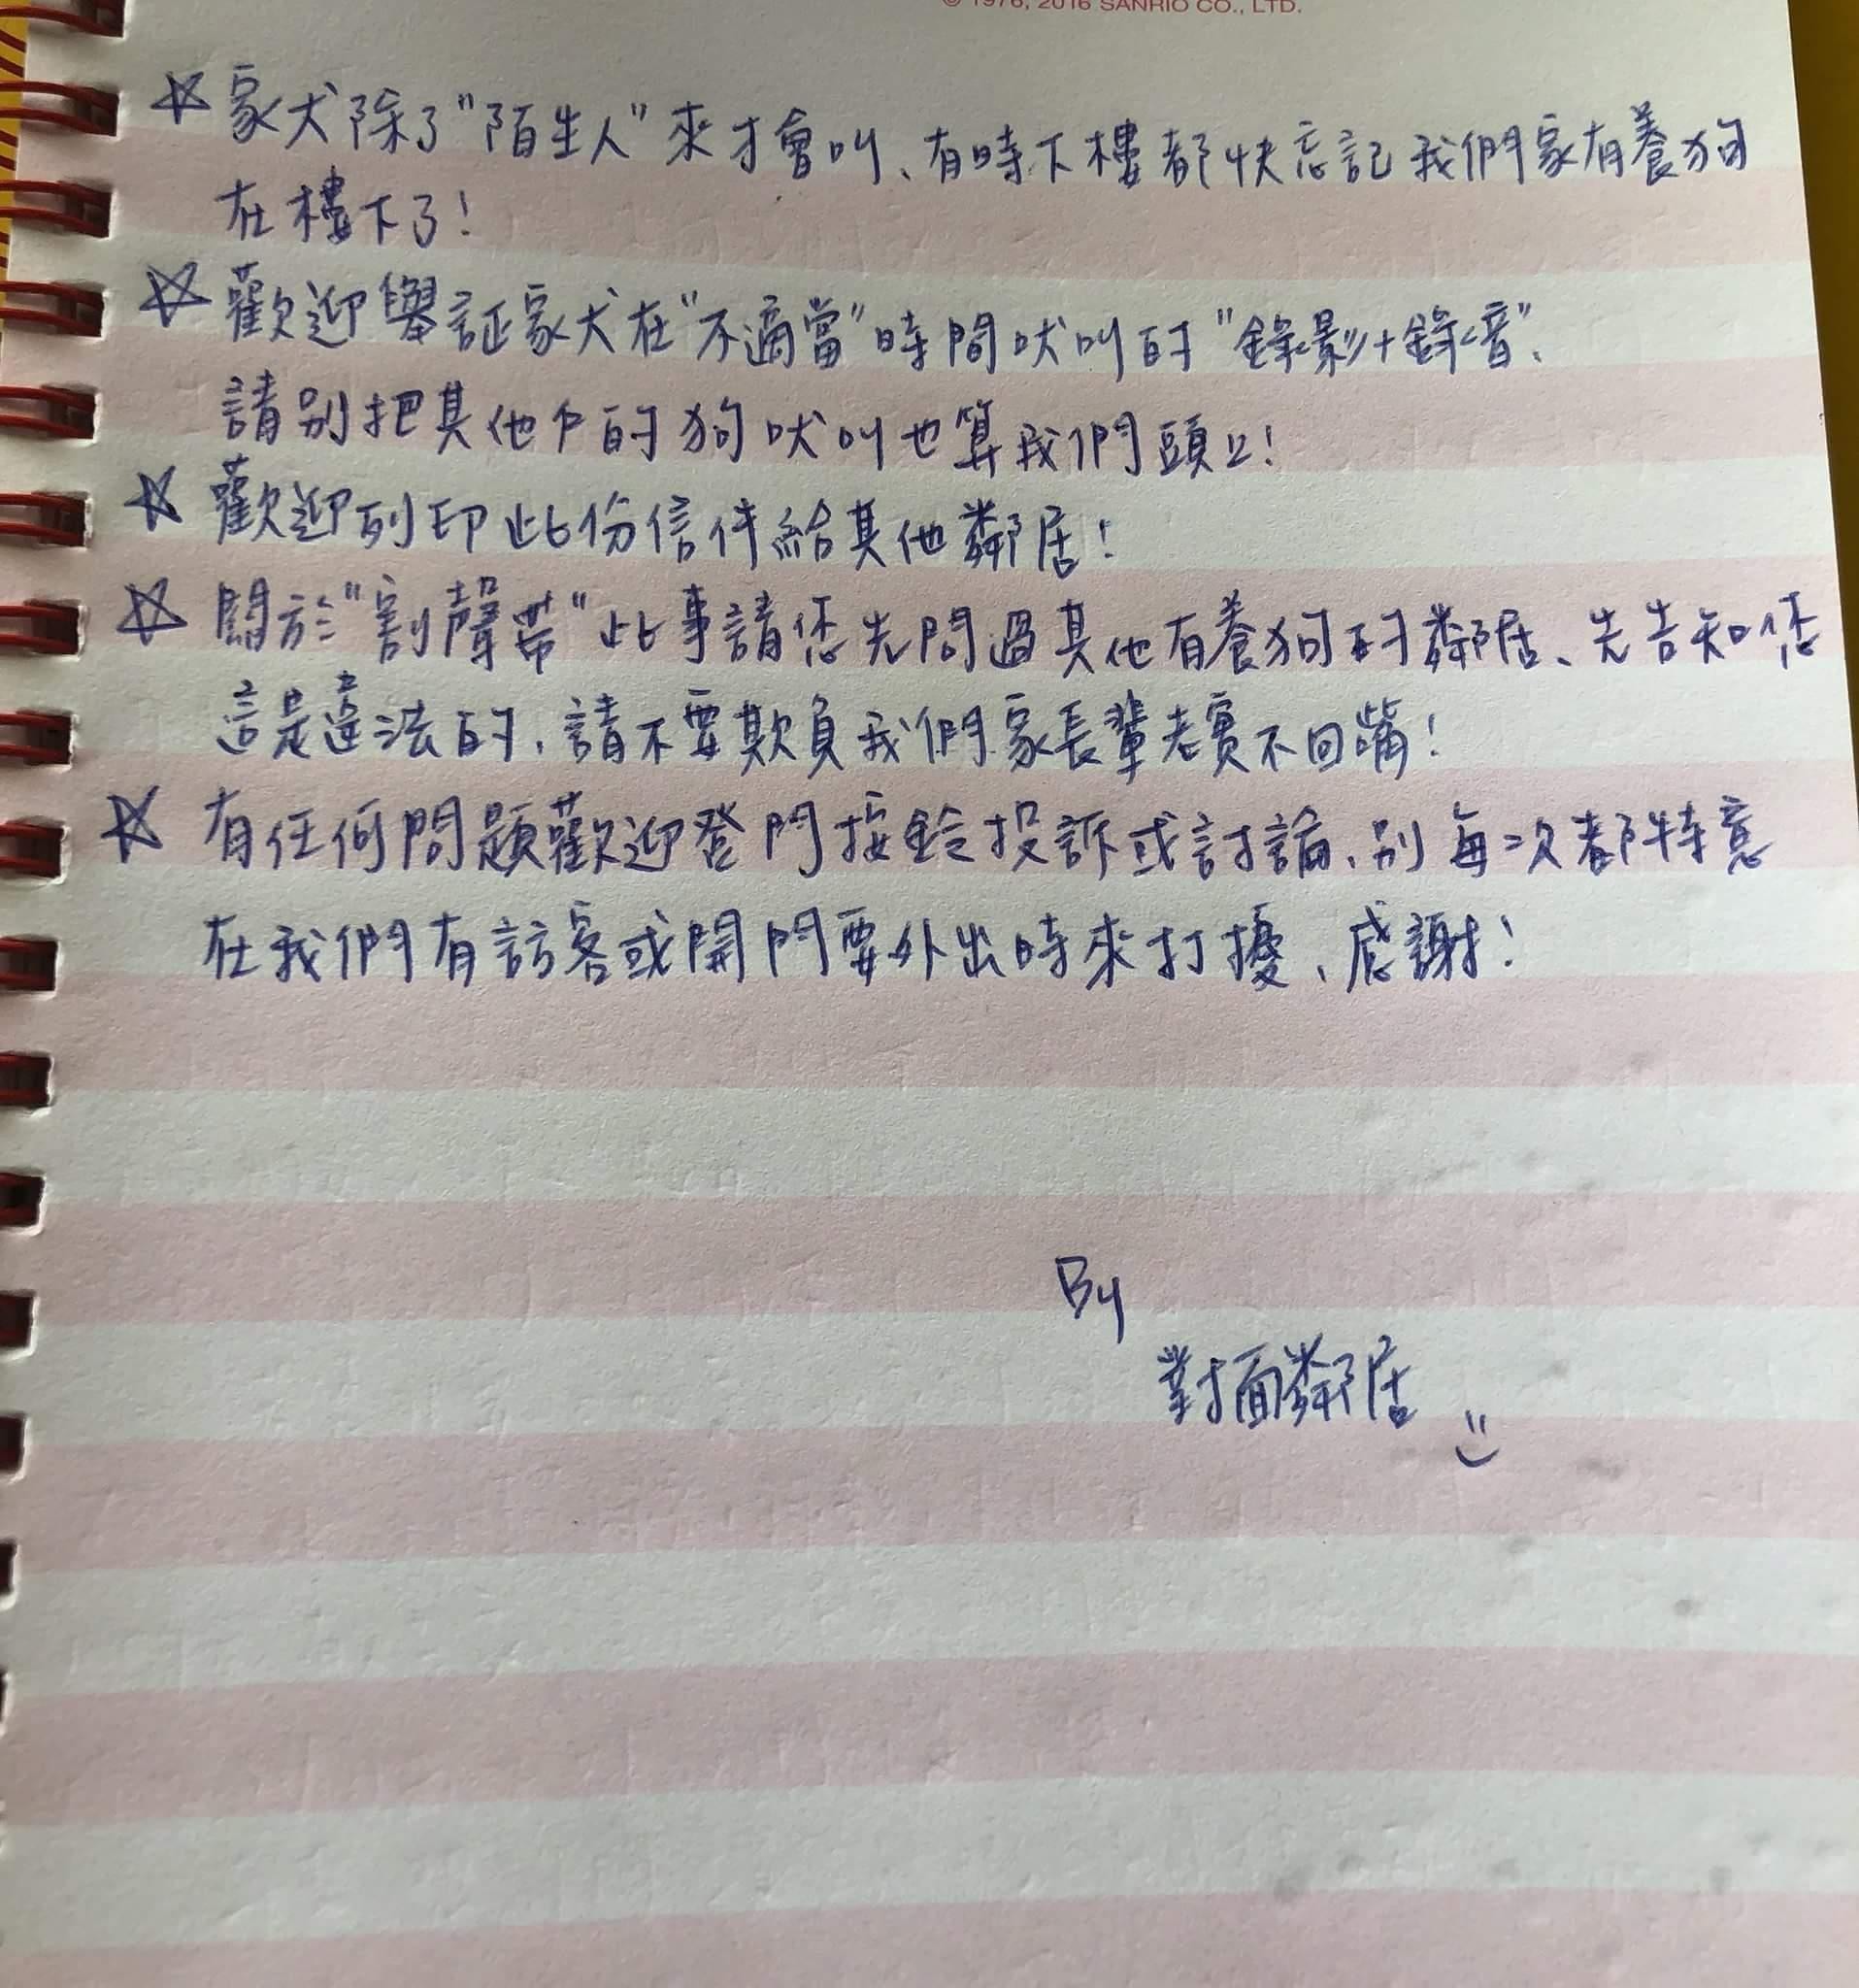 © 1976, 2016 SANRIO CO., LTD.
☆ 家犬除了"陌生人"來才會叫、有時下樓都快忘記我們家有養狗
在樓下了!
☆ 歡迎舉証家犬在"不適當"時間吠叫的"錄影+錄音"、
請別把其他戶的狗吠叫也算我們頭上!
☆ 歡迎列印此份信件給其他鄰居!
☆ 關於"割聲帶"此事請您先問過其他有養狗的鄰居、先告知您
這是違法的,請不要欺負我們家長輩老實不回嘴!
☆ 有任何問題歡迎登門按鈴投訴或討論、別每次都特意
在我們有訪客或開門要外出時來打擾、感謝!
By
對面鄰居